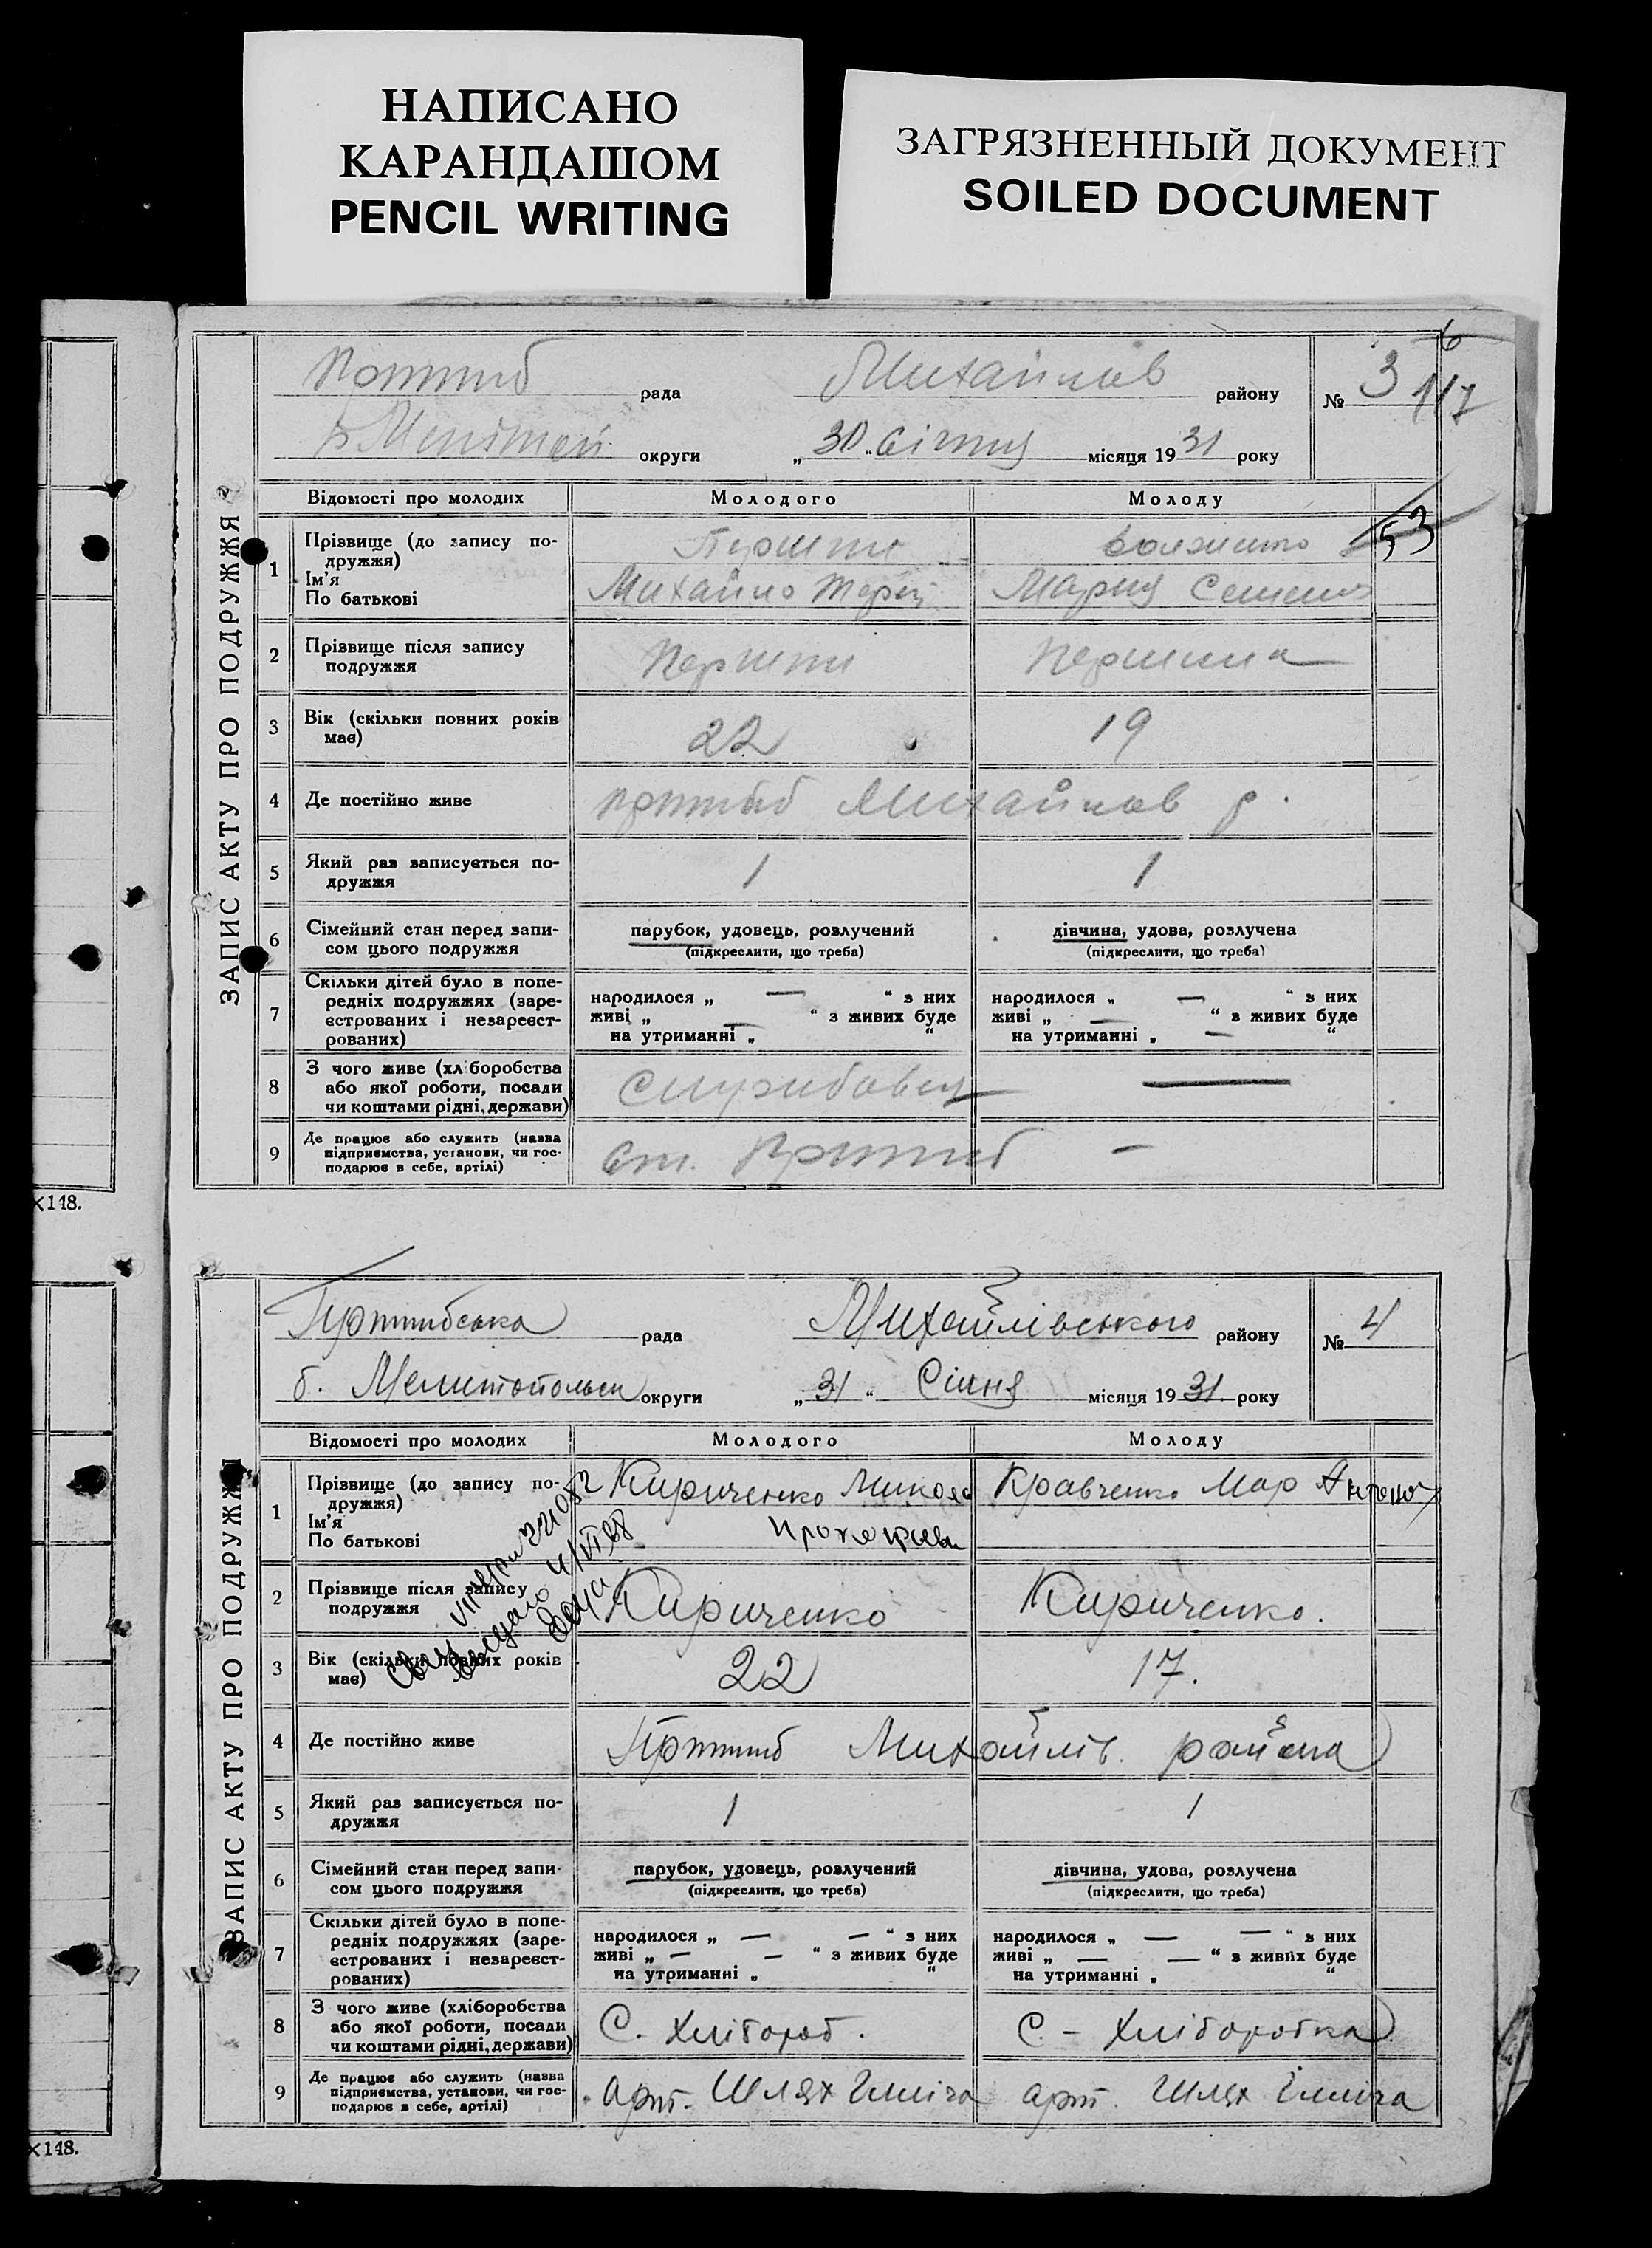 НАПИСАНО
КАРАНДАШОМ
PENCIL WRITING
ЗАГРЯЗНЕННЫЙ ДОКУМЕНТ
SOILED DOCUMENT
ЗАПИС АКТУ ПРО ПОДРУЖЖЯ
рада Михайлов району № 3
117
округи „30“ Січня місяця 1931 року
53
Відомості про молодих Молодого Молоду
1 Прізвище (до запису по-
дружжя)
Ім’я
По батькові
Михайло Мария
2 Прізвище після запису
подружжя
Першин Першина
3 Вік (скільки повних років
має)
22 19
4 Де постійно живе
Михайлов р.
5 Який раз записується по-
дружжя
1 1
6 Сімейний стан перед запи-
сом цього подружжя
парубок, удовець, розлучений
(підкреслити, що треба)
дівчина, удова, розлучена
(підкреслити, що треба)
7 Скільки дітей було в попе-
редніх подружжях (заре-
єстрованих і незареєст-
рованих)
народилося „ — “ з них
живі „ — “ з живих буде
на утриманні „ “
народилося „ — “ з них
живі „ — “ з живих буде
на утриманні „ — “
8 З чого живе (хліборобства
або якої роботи, посади
чи коштами рідні, держави)
—
9 Де працює або служить (назва
підприємства, установи, чи гос-
подарює в себе, артілі)
ст. —
×148.
ЗАПИС АКТУ ПРО ПОДРУЖЖЯ
рада Михайлівського району № 4
б. Мелитопольск округи „31“ Січня місяця 1931 року
Відомості про молодих Молодого Молоду
1 Прізвище (до запису по-
дружжя)
Ім’я
По батькові
Кириченко Микола
Кравченко Мар Антонов
2 Прізвище після запису
подружжя
Кириченко Кириченко.
3 Вік (скільки повних років
має)
22 17.
4 Де постійно живе
Михайлів. района
5 Який раз записується по-
дружжя
1 1
6 Сімейний стан перед запи-
сом цього подружжя
парубок, удовець, розлучений
(підкреслити, що треба)
дівчина, удова, розлучена
(підкреслити, що треба)
7 Скільки дітей було в попе-
редніх подружжях (заре-
єстрованих і незареєст-
рованих)
народилося „ — — “ з них
живі „ — — “ з живих буде
на утриманні „ “
народилося „ — — “ з них
живі „ — — “ з живих буде
на утриманні „ “
8 З чого живе (хліборобства
або якої роботи, посади
чи коштами рідні, держави)
С. Хлібороб. С - Хліборобка
9 Де працює або служить (назва
підприємства, установи, чи гос-
подарює в себе, артілі)
арт. Шлях Ілліча арт. Шлях Ілліча
×148.